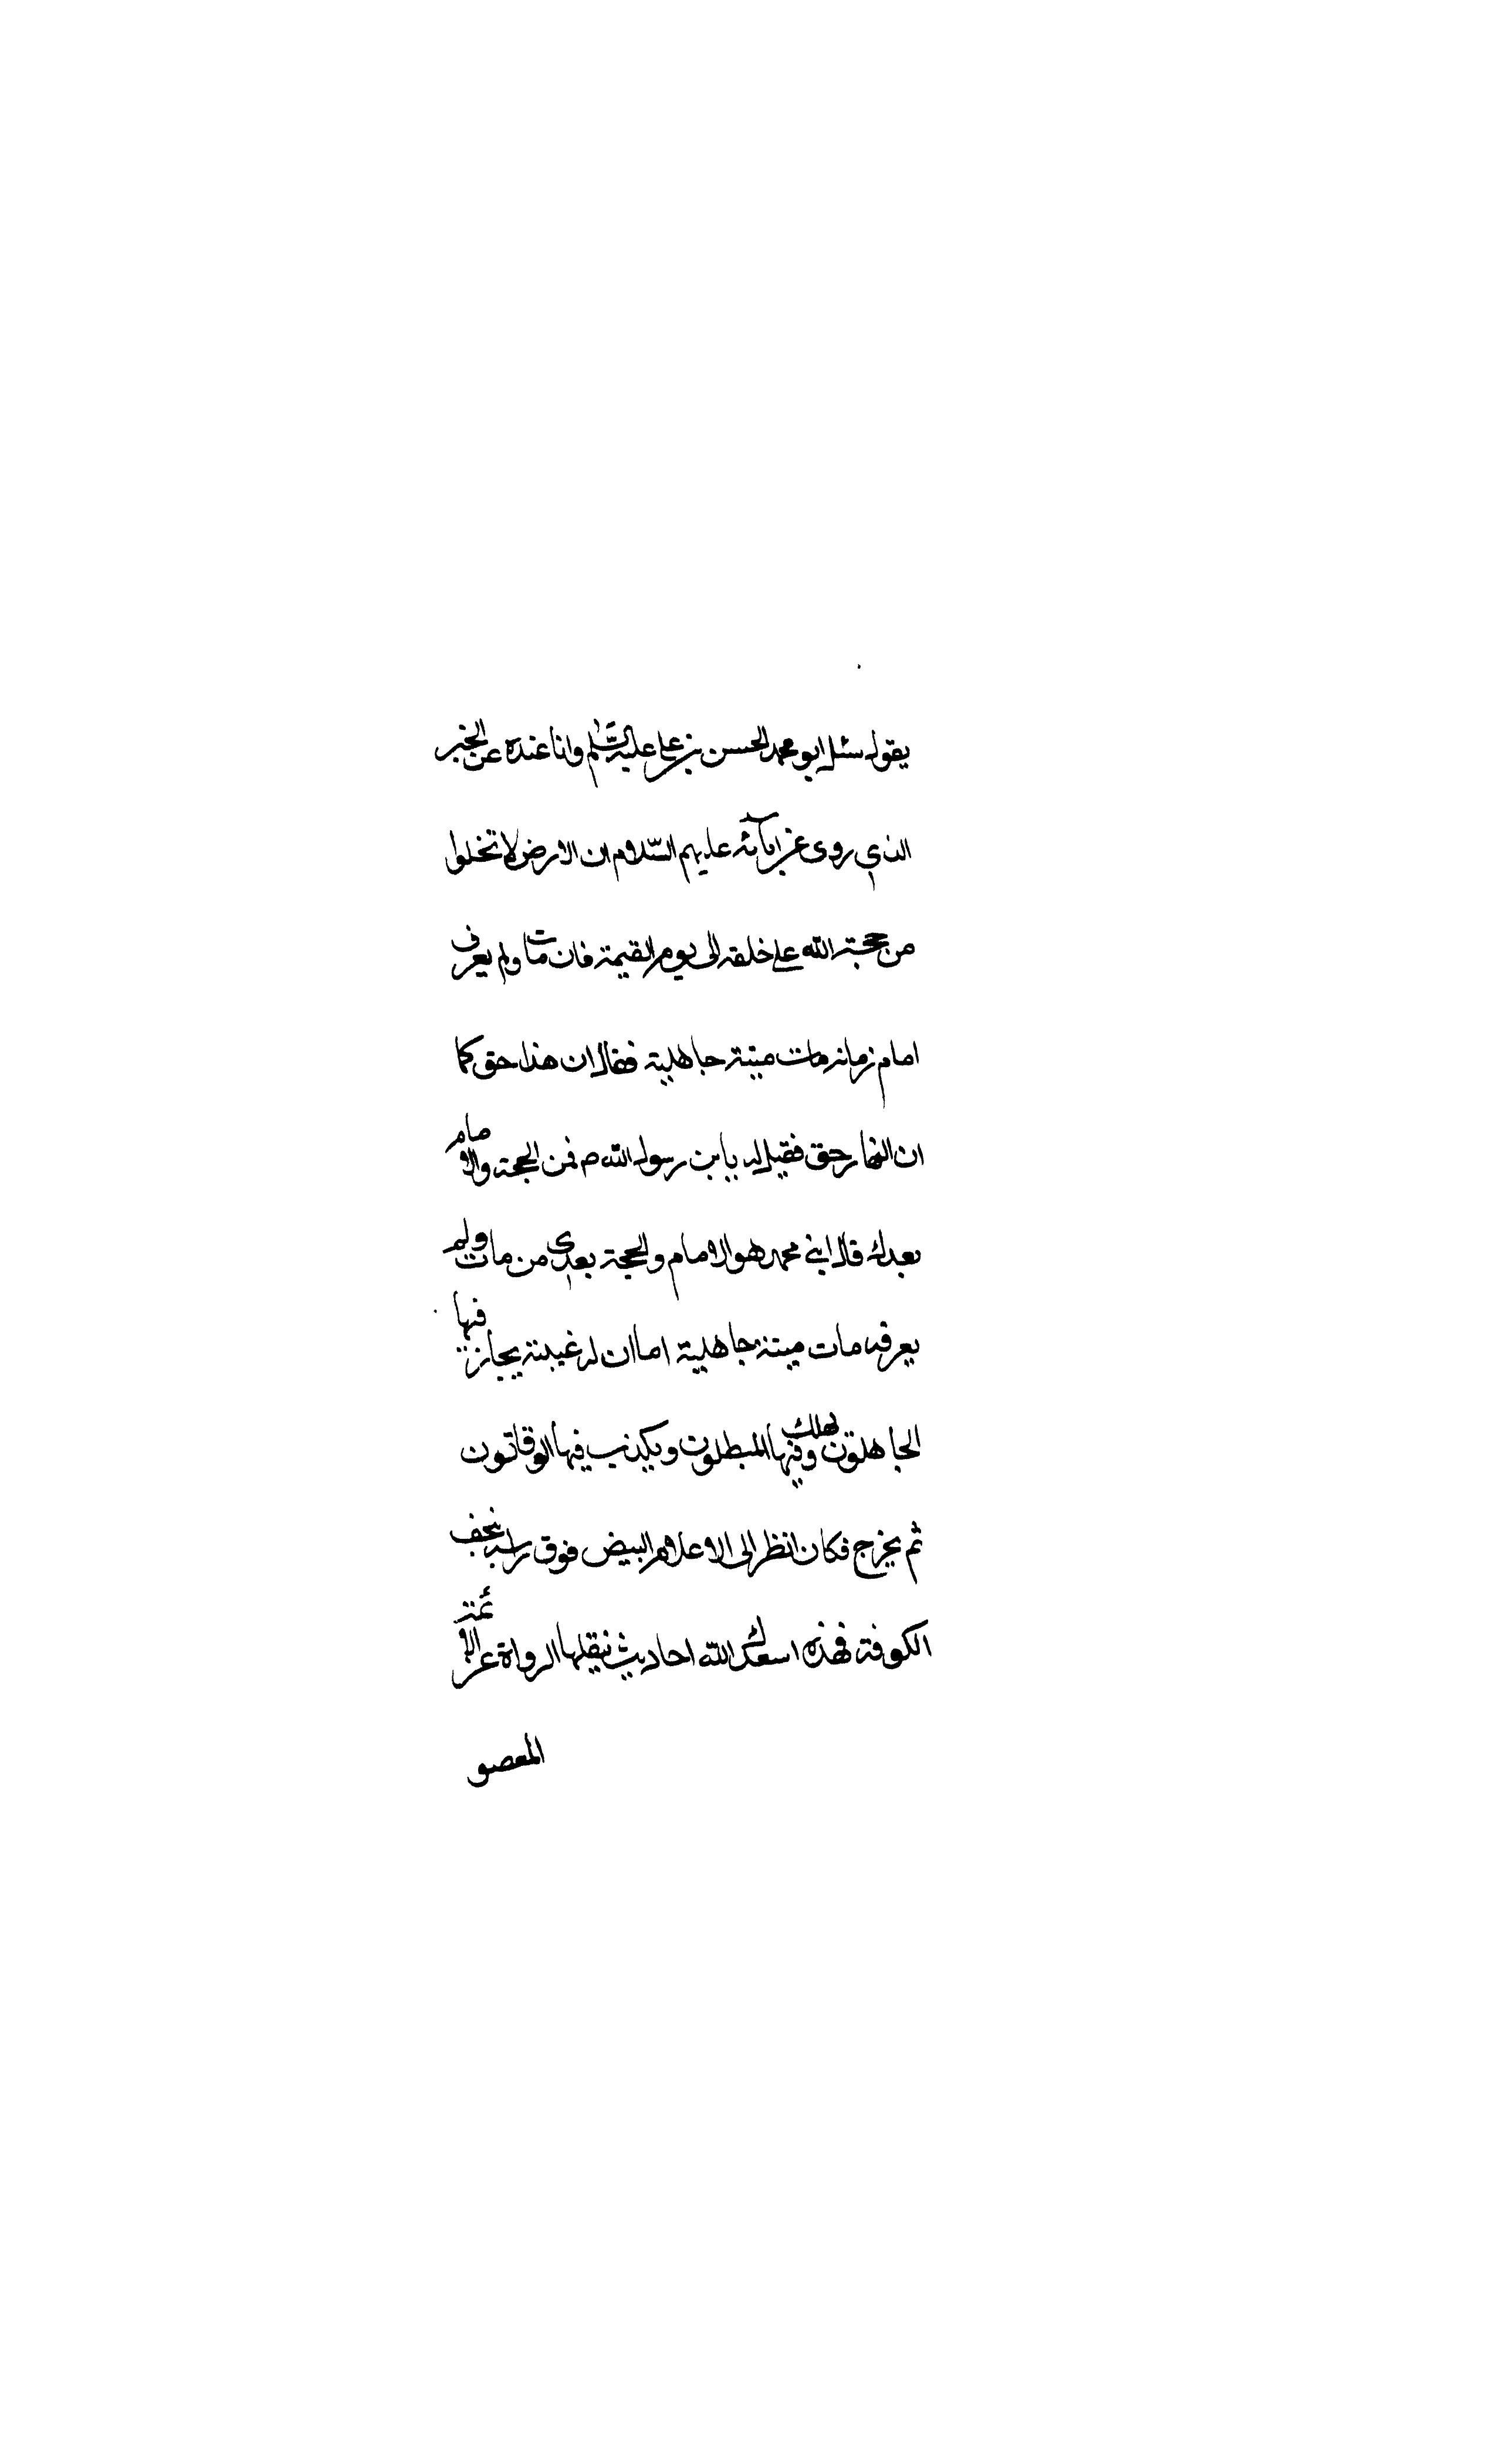 يقول سئل ابو محمد الحسن بن علي عليه السّلم وانا عنده عن الخبر
الذي روى عن ابآئه عليهم السّلام ان الارض لا تخلوا
من حجة الله على خلقه الى يوم القيمة فان مات ولم يعرف
امام زمانه مات ميتة جاهلية فقال ان هذا حق كما
ان النهار حق فقيل له يابن رسول الله ص فمن الحجة والامام
بعدك قال ابني محمد هو الامام والحجة بعدي من مات ولم
يعرفه مات ميتة جاهلية اما ان له غيبة يحار فيها
الجاهلون ويهلك فيها المبطلون ويكذب فيها الوقاتون
ثم يخرج فكان انظر الى الاعلام البيض فوق راسه بنجف
الكوفة فهذه اسعدك الله احاديث نيقلها الرواة عن الائمة
المعصو